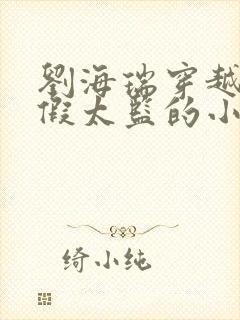 劉海瑞穿越
假太監的小
绮小纯